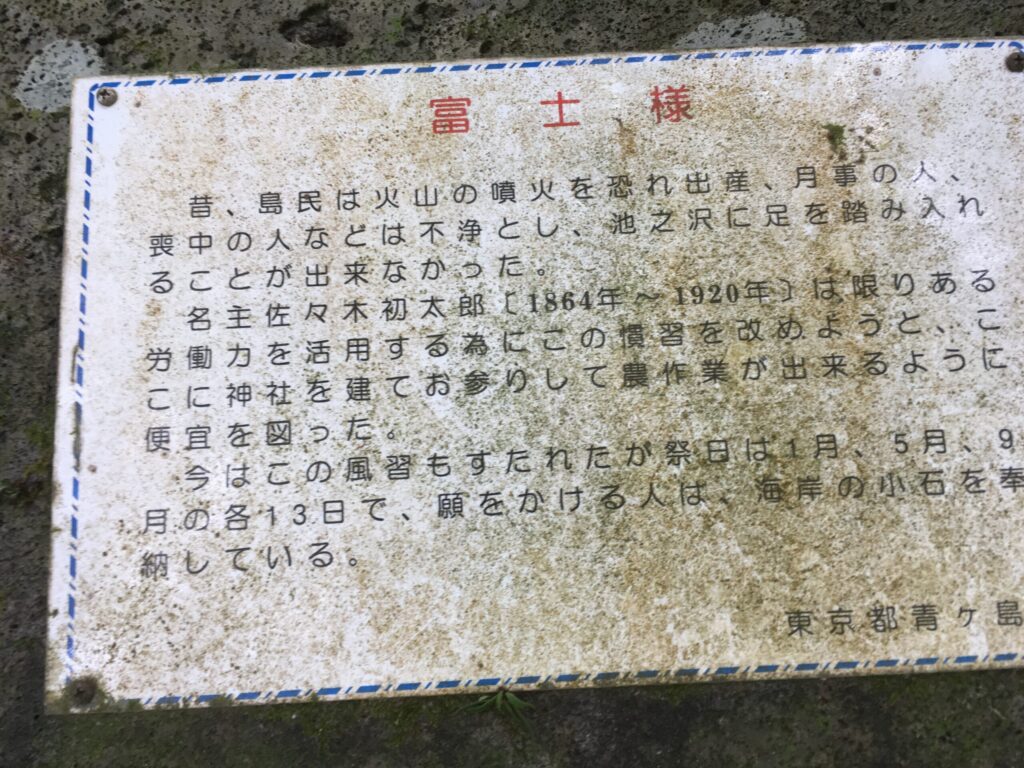 富士様
昔、島民は火山の噴火を恐れ出産、月事の人、
喪中の人などは不浄とし、池之沢に足を踏み入れ
ることが出来なかった。
名主佐々木初太郎〔1864年～1920年〕は限りある
労働力を活用する為にこの慣習を改めようと、こ
こに神社を建てお参りして農作業が出来るように
便宜を図った。
今はこの風習もすたれたが祭日は1月、5月、9
月の各13日で、願をかける人は、海岸の小石を奉
納している。
東京都青ヶ島